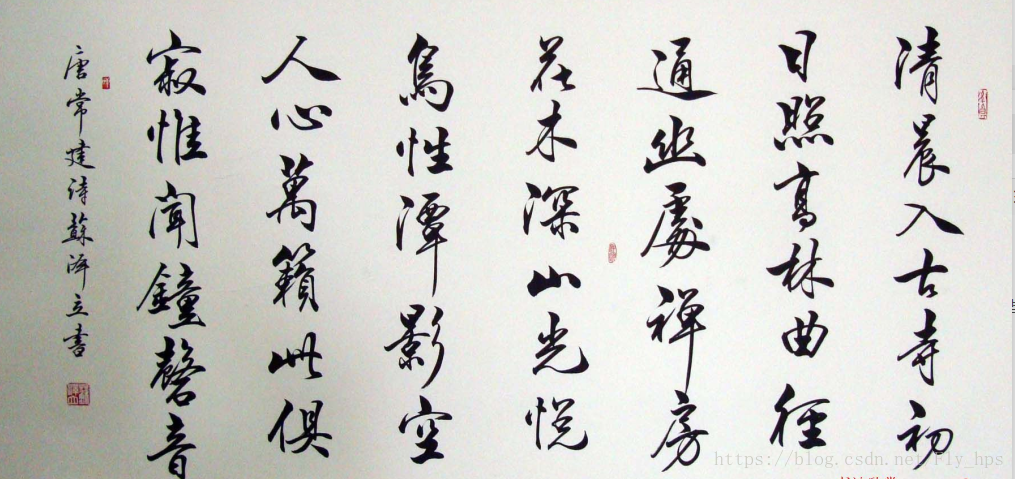 清晨入古寺初
日照高林曲徑
通幽處禪房
花木深山光悅
鳥性潭影空
人心萬籟此俱
寂惟聞鐘磬音
唐常建詩蘇澤立書
https://blog.csdn.net/fly_hps